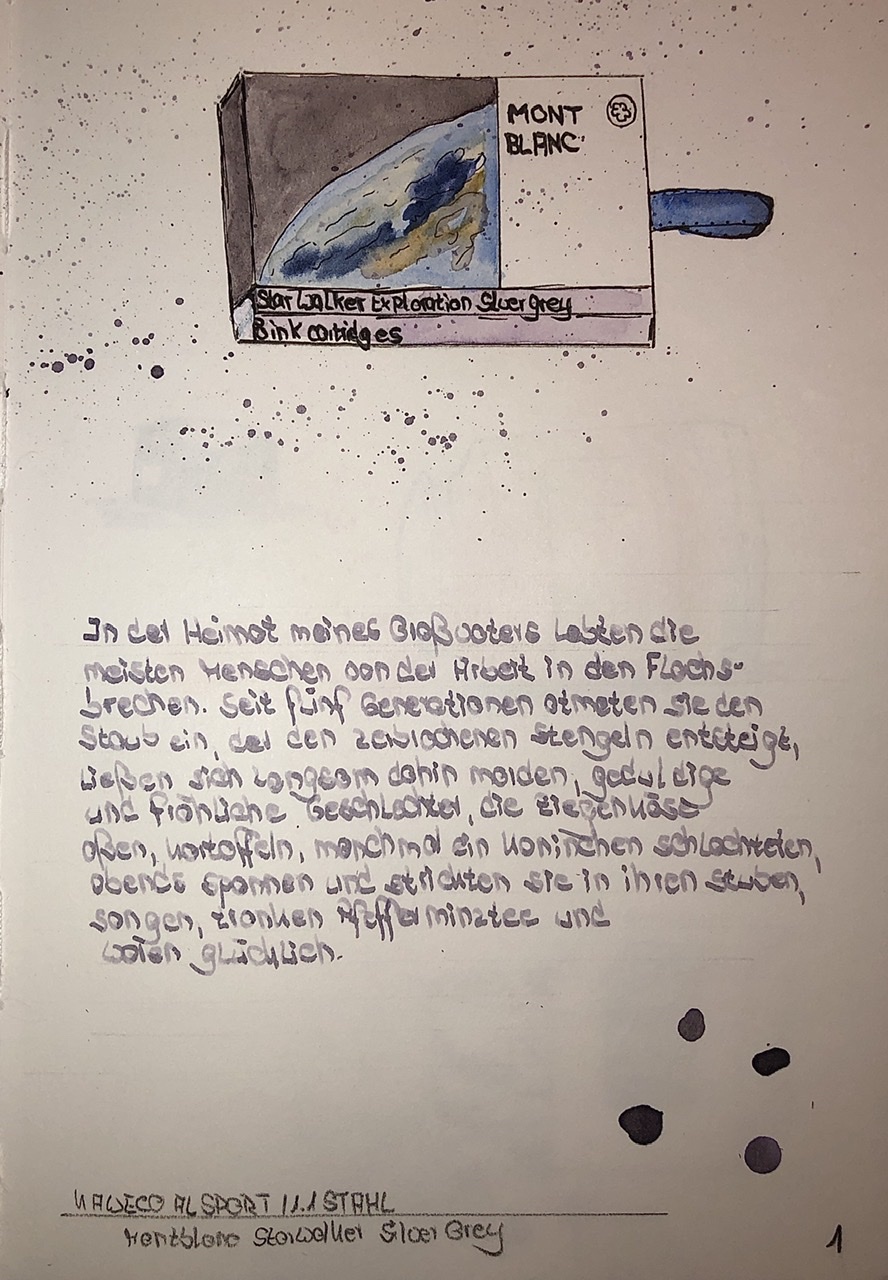 MONT
BLANC
StarWalker Exploration Silvergrey
8 ink cartidges
In der Heimat meines Großvaters lebten die
meisten Menschen von der Arbeit in den Flachs-
brechen. Seit fünf Generationen atmeten sie den
Staub ein, der den zerbrochenen Stengeln entsteigt,
ließen sich langsam dahin morden, geduldige
und fröhliche Geschlechter, die Ziegenkäse
aßen, Kartoffeln, manchmal ein Kaninchen schlachteten,
abends spannen und strickten sie in ihren Stuben,
sangen, tranken Pfefferminztee und
waren glücklich.
KAWECO AL SPORT 1.1 STAHL
Montblanc Starwalker Silver Grey
1